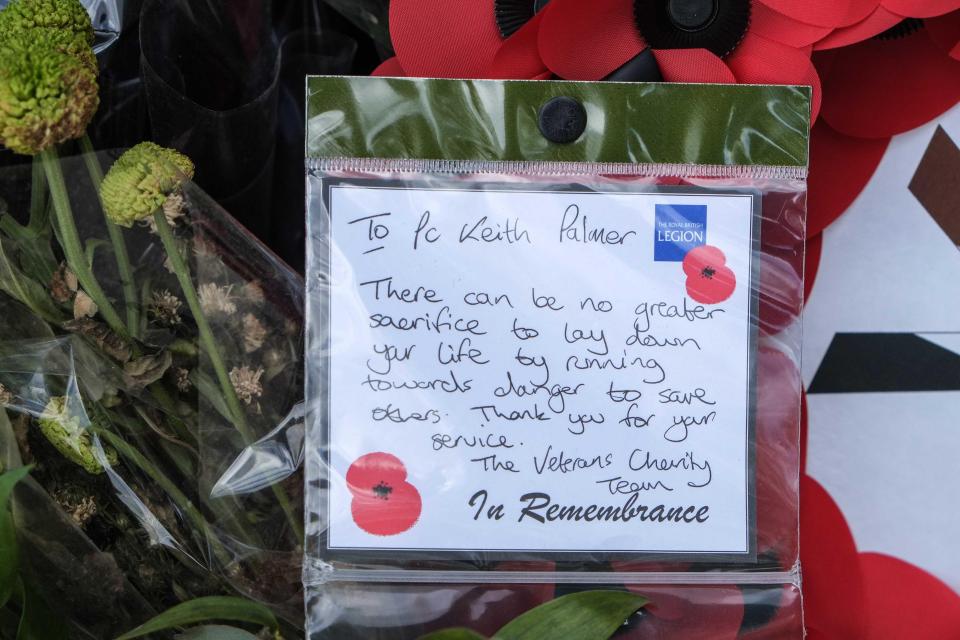 To Pc Keith Palmer
THE ROYAL BRITISH
LEGION
There can be no greater
sacrifice to lay down
your life by running
towards danger to save
others. Thank you for your
service.
The Veterans Charity
Team
In Remembrance